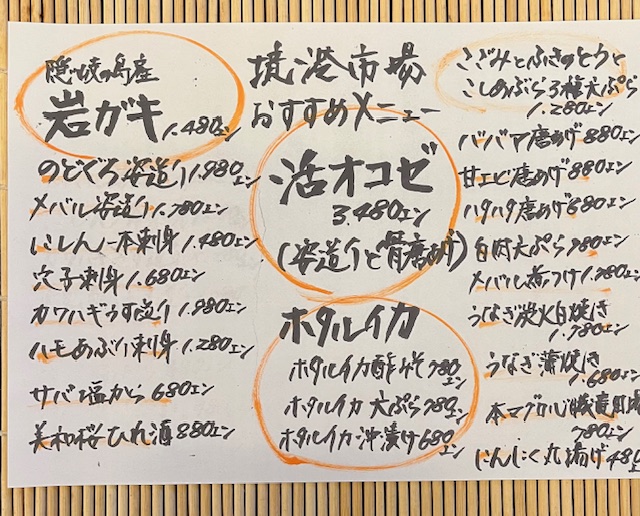 隠岐の島産
岩ガキ 1.480エン
のどぐろ姿造り 1.980エン
メバル姿造り 1.780エン
にしん一本刺身 1.480エン
穴子刺身 1.680エン
カワハギうす造り 1.980エン
ハモあぶり刺身 1.280エン
サバ塩から 680エン
美和桜ひれ酒 880エン
境港市場
おすすめメニュー
活オコゼ
3.480エン
(姿造りと骨唐あげ)
ホタルイカ
ホタルイカ酢みそ 780エン
ホタルイカ天ぷら 780エン
ホタルイカ沖漬け 680エン
こごみとふきのとうと
こしあぶら3種天ぷら
1.280エン
ババア唐あげ 880エン
甘エビ唐あげ 880エン
ハタハタ唐あげ 680エン
白肉天ぷら 780エン
メバル煮つけ 1.780エン
うなぎ炭火白焼き
1.780エン
うなぎ蒲焼き
1.680エン
本マグロ
780エン
にんにく丸揚げ 48